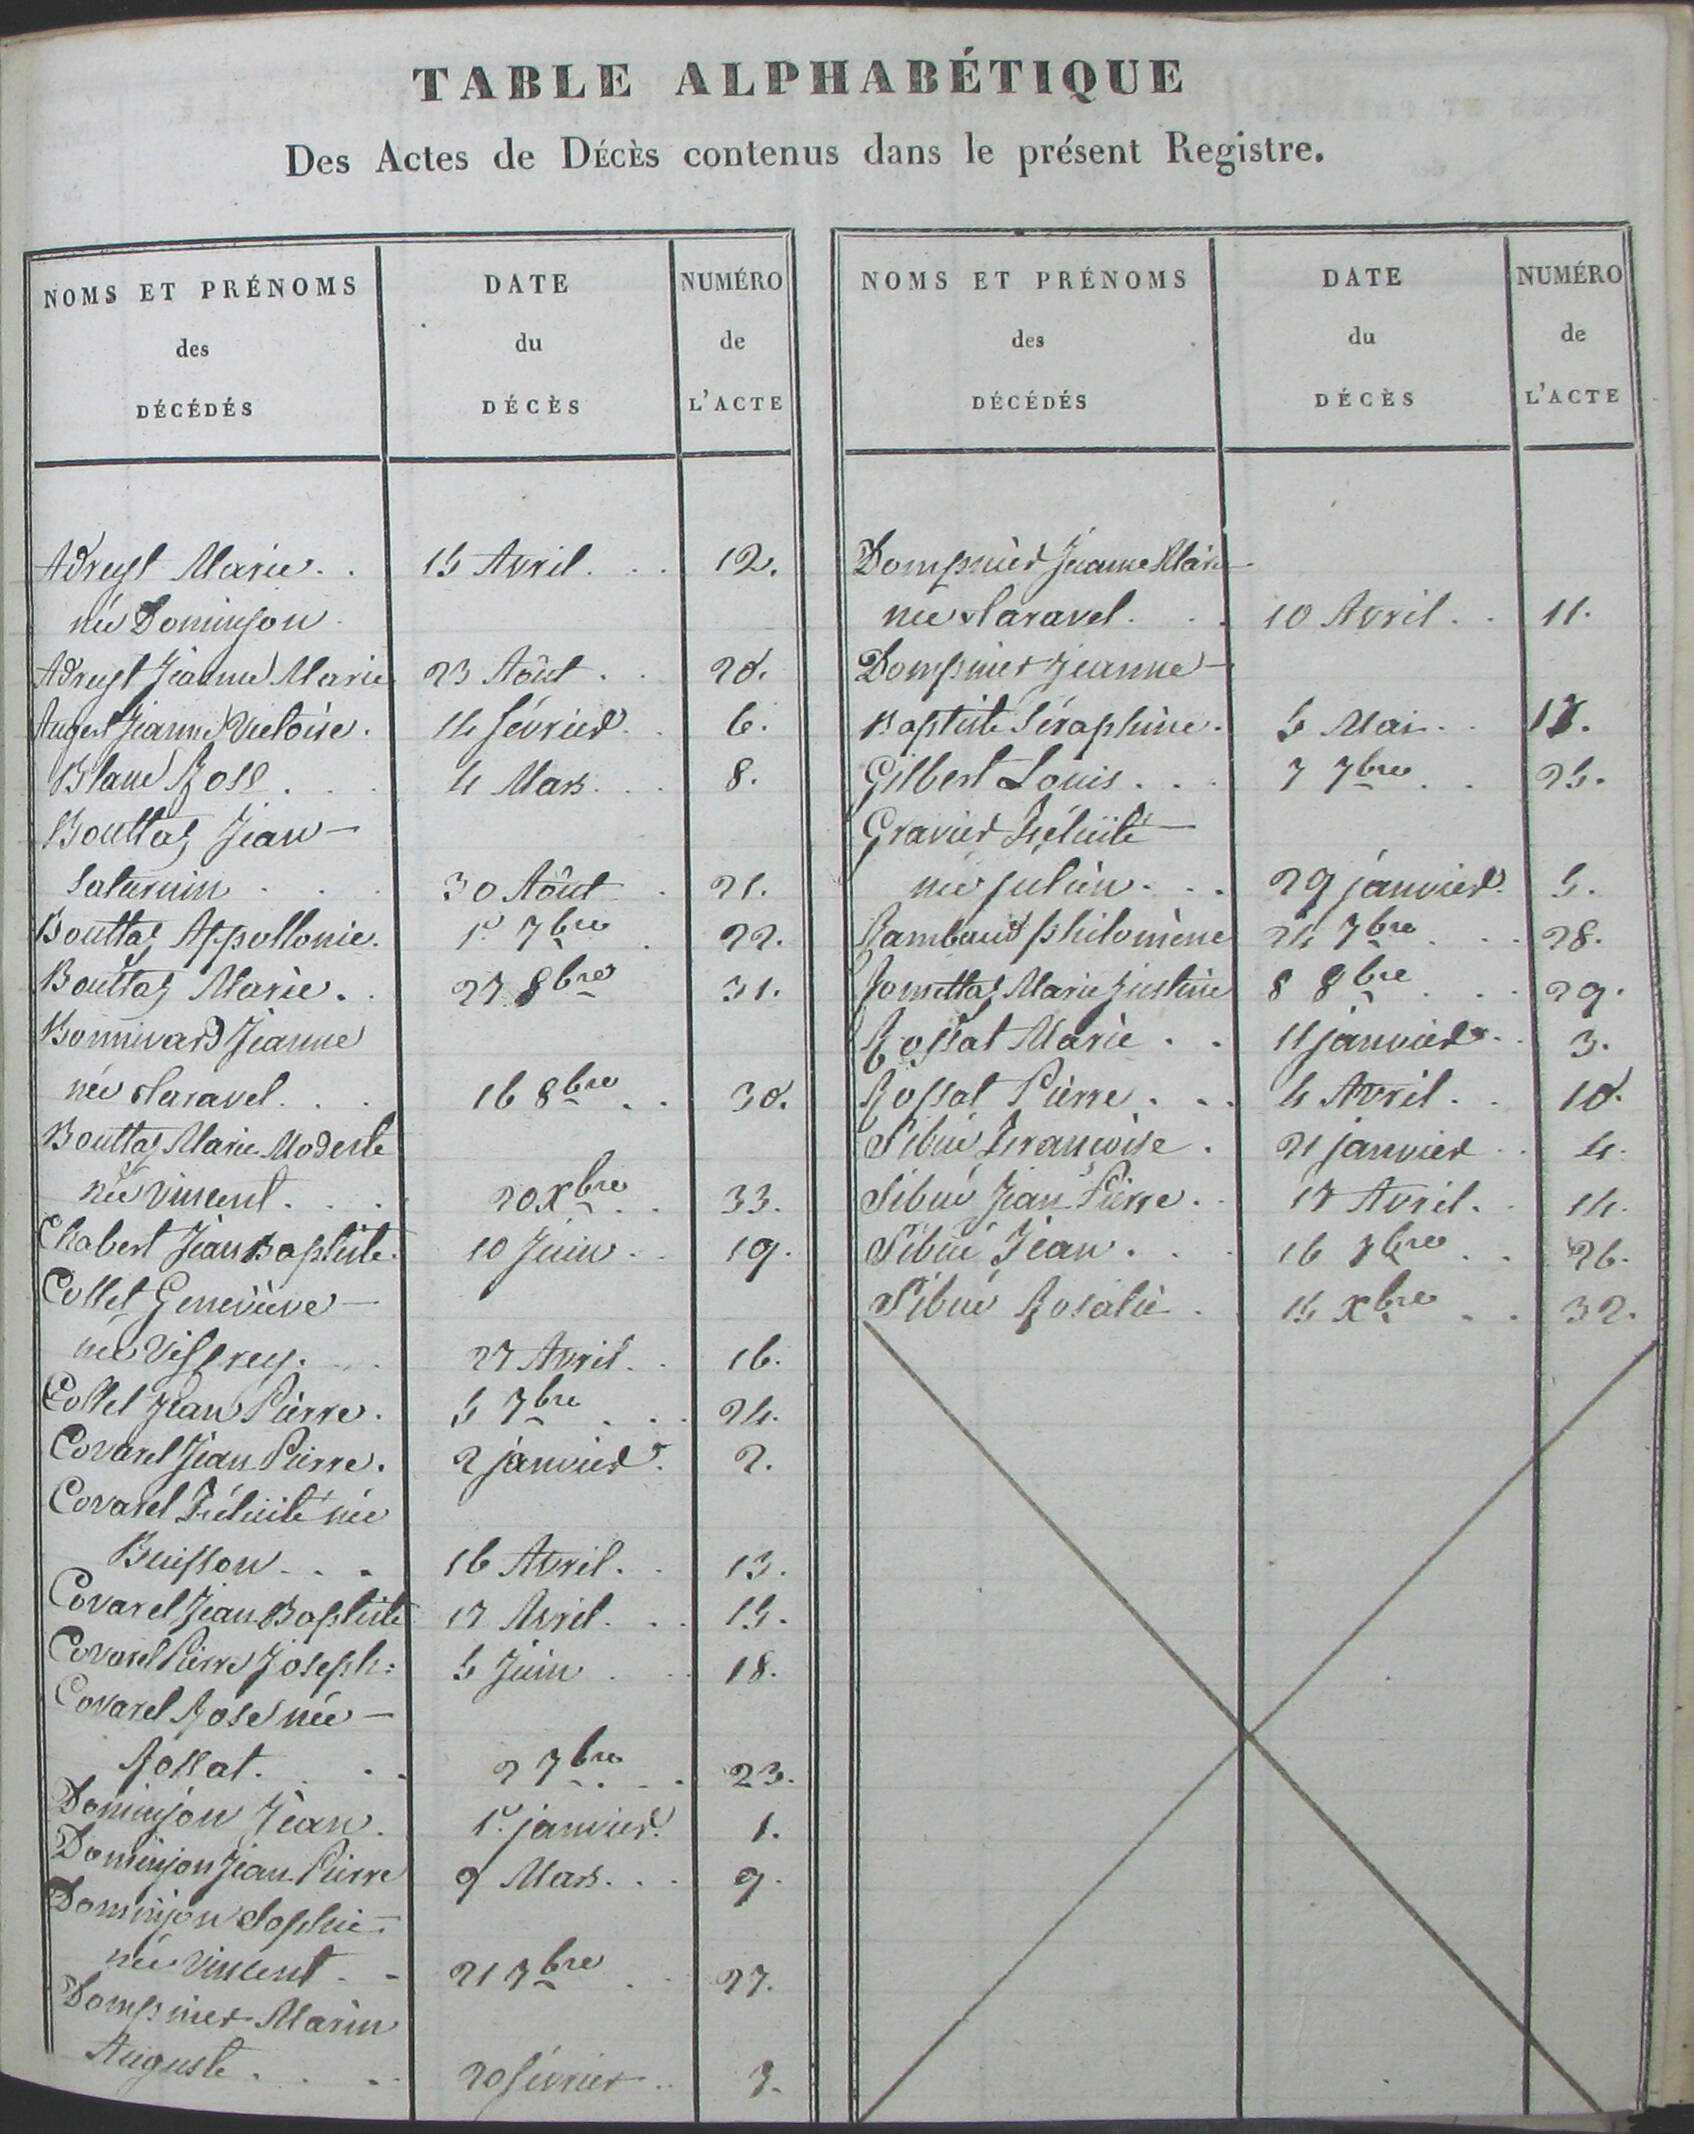 TABLE ALPHABÉTIQUE
Des Actes de DÉCÈS contenus dans le présent Registre.
NOMS ET PRÉNOMS des DÉCÉDÉS
DATE du DÉCÈS
NUMÉRO de L'ACTE
Adreyt Marie . . 15 Avril . . . 12.
née Dominjon
Adreyt Jeanne Marie 23 Août . . 20.
Augert Jeanne Victoire . 14 février . . 6.
Blanc Rose . . . 4 Mars . . . 8.
Bouttaz Jean –
Saturnin . . . 30 Août . 21.
Bouttaz Appollonie . 1er 7bre . 22.
Bouttaz Marie . . 27 8bre 31.
Bonnivard Jeanne
née Claravel . . . 16 8bre . . 30.
Bouttaz Marie Modeste
née Vincent . . . 20 Xbre . . 33.
Chabert Jean Baptiste . 10 Juin . . 19.
Collet Geneviève –
née . . . 27 Avril . . 16.
Collet Jean Pierre . 5 7bre . . . 24.
Covarel Jean Pierre . 2 janvier . 2.
Covarel Félicité née
Buisson . . . 16 Avril . . 13.
Covarel Jean Baptiste 17 Avril . . . 15.
Covarel Pierre Joseph : 5 Juin . . 18.
Covarel Rose née –
Rossat . . . 2 7bre . . . 23.
Dominjon Jean . 1er janvier . 1.
Dominjon Jean Pierre 9 Mars . . . 9.
Dominjon Sophie –
née Vincent . - 21 7bre . . 27.
Dompnier Marin
Auguste . . . . 20 février . . 7.
NOMS ET PRÉNOMS des DÉCÉDÉS
DATE du DÉCÈS
NUMÉRO de L'ACTE
Dompnier Jeanne Marie –
née Claravel . . . 10 Avril . . 11.
Dompnier Jeanne –
Baptiste Séraphine . 5 Mai . . . 17.
Gilbert Louis . . . 7 7bre . . 25.
Gravier Félicité –
née Julien . . . 29 janvier . 5.
Rambaud Philomène 24 7bre . . . 28.
Marie Justine 8 8bre . . . 29.
Rossat Marie . . 11 janvier . . 3.
Rossat Pierre . . . 4 Avril . . 10.
Sibué Françoise . 21 janvier . . 4.
Sibué Jean Pierre . . 17 Avril . . 14.
Sibué Jean . . . 16 7bre . . 26.
Sibué Rosalie . 15 Xbre . . 32.